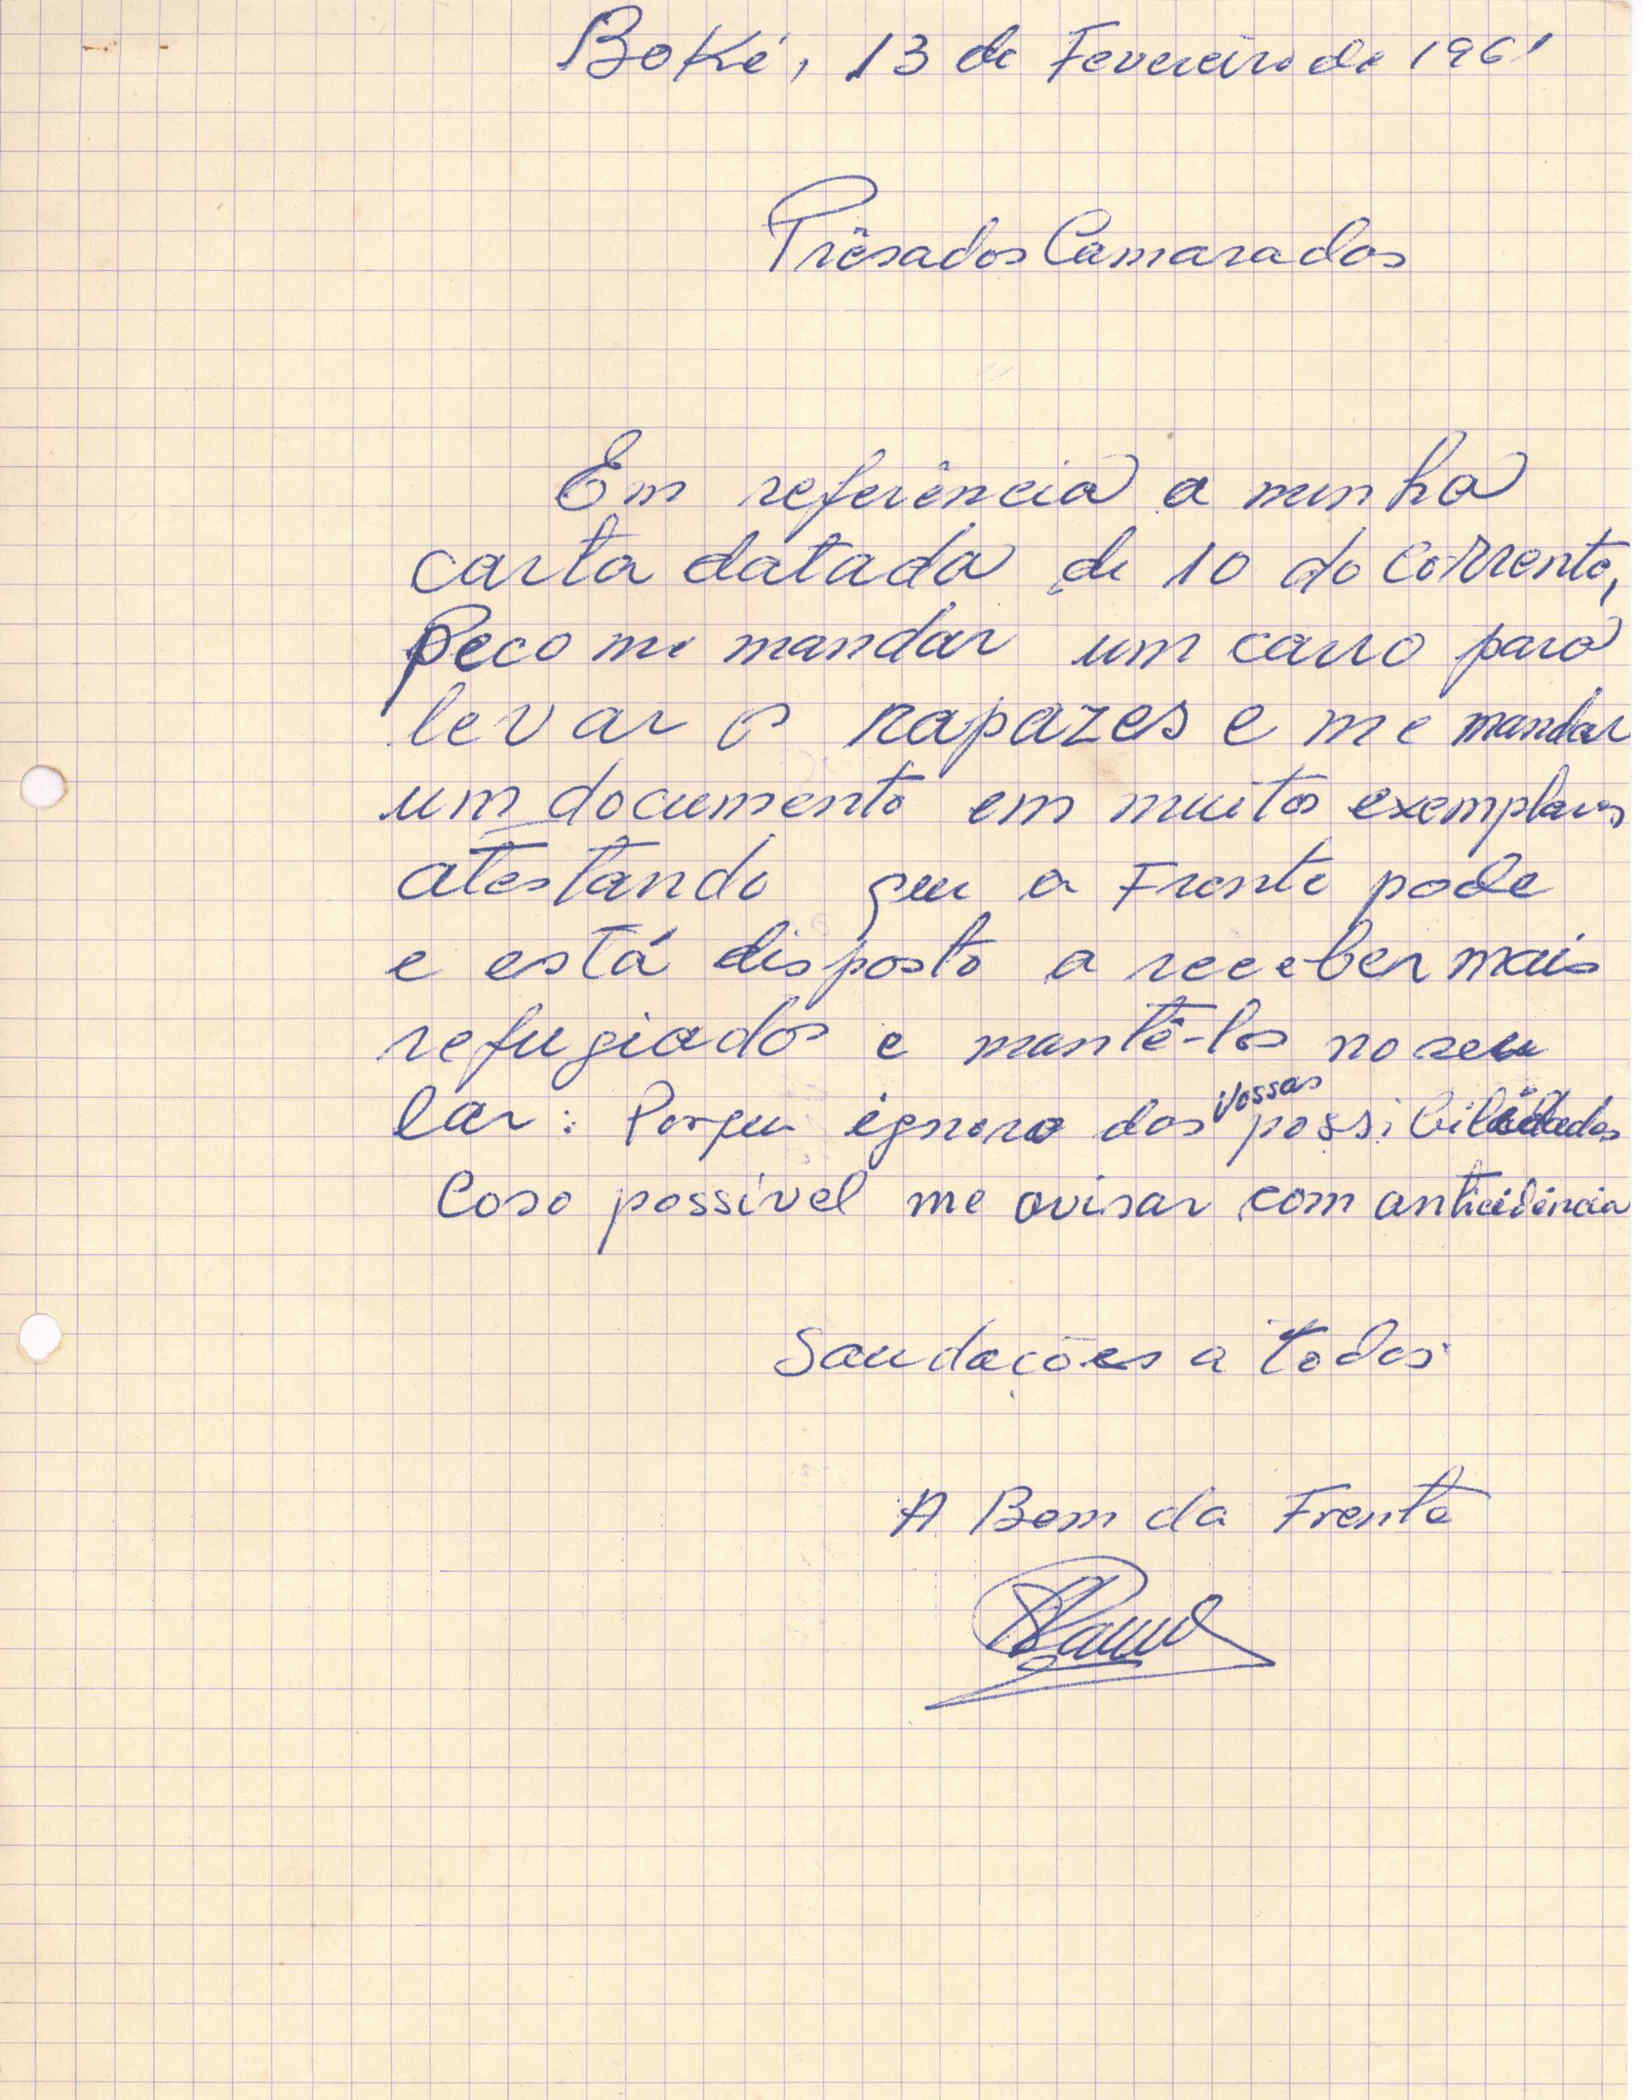 Boké, 13 de Fevereiro de 1961
Prêsados Camaradas
Em referência a minha
carta datada de 10 do corrente,
Peco me mandar um carro para
levar os rapazes e me mandar
um documento em muitos exemplares
atestando que a Frente pode
e está disposto a receber mais
refugiados e mantê-los no seu
lar: Porque ignoro das vossas possibilidades
Caso possível me avisar com anticidência
Saudações a todos
A Bem da Frente